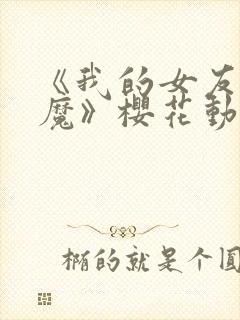 《我的女友
魔》樱花動
椭的就是个圆